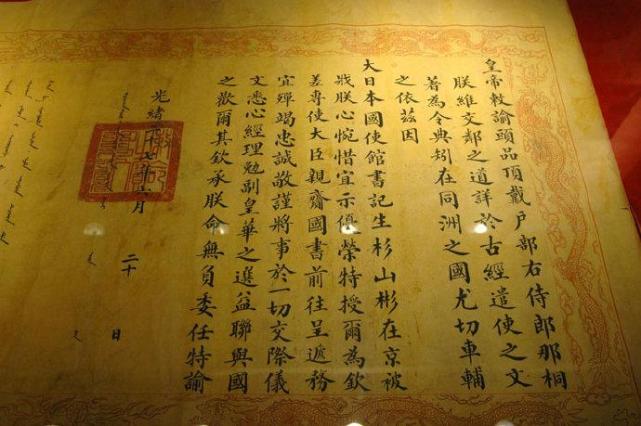 皇帝敕諭頭品頂戴戶部右侍郎那桐
朕維交鄰之道詳於古經遣使之文
著為令典矧在同洲之國尤切車輔
之依茲因
大日本國使館書記生杉山彬在京被
戕朕心惋惜宜示優榮特授爾為欽
差專使大臣親齎國書前往呈遞務
宜殫竭忠誠敬謹將事於一切交際儀
文悉心經理勉副皇華之選益聯與國
之歡爾其欽承朕命無負委任特諭
光緒二十七年六月二十日